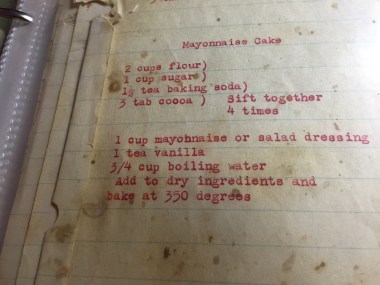 Mayonnaise Cake
2 cups flour)
1 cup sugar)
1½ tea baking soda)
3 tab cocoa ) Sift together
4 times
1 cup mayohnaise or salad dressing
1 tea vanilla
3/4 cup boiling water
Add to dry ingredients and
bake at 350 degrees